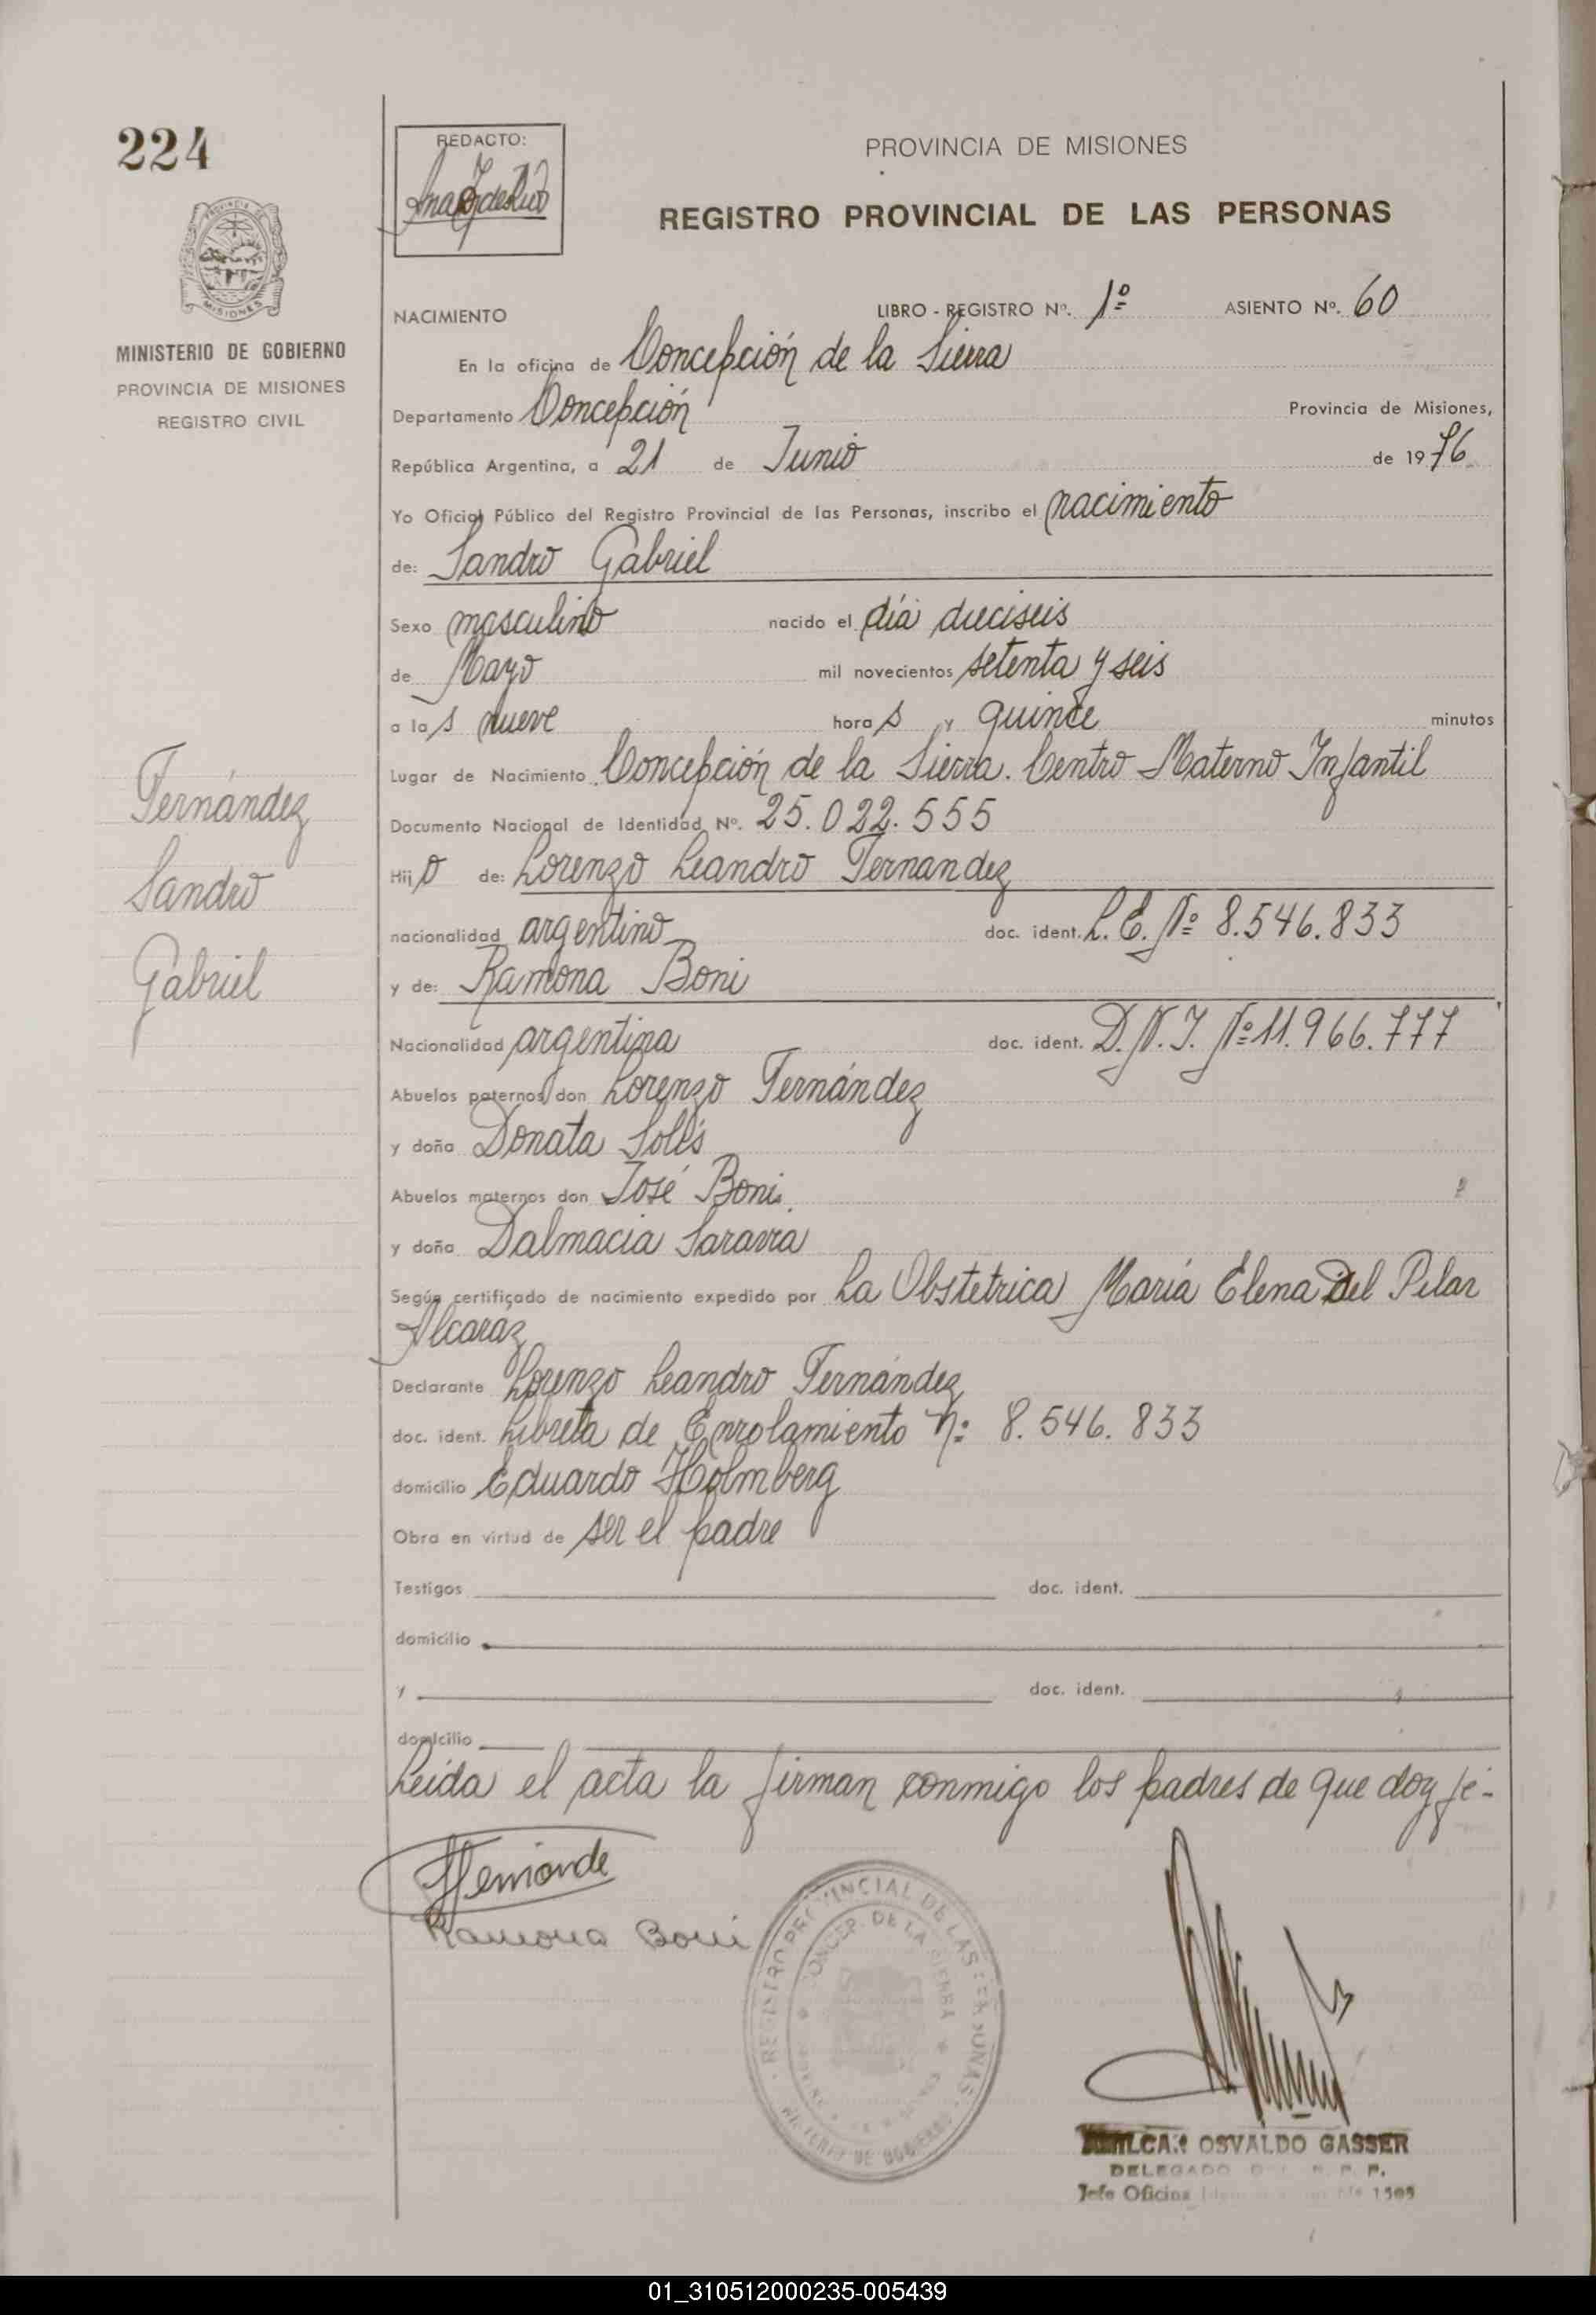 224
REDACTO:
PROVINCIA DE MISIONES
REGISTRO PROVINCIAL DE LAS PERSONAS
MISIONES
MINISTERIO DE GOBIERNO
PROVINCIA DE MISIONES
REGISTRO CIVIL
NACIMIENTO LIBRO - REGISTRO Nº. 1º ASIENTO Nº. 60
En la oficina de Concepción de la Sierra
Departamento Concepción Provincia de Misiones,
República Argentina, a 21 de Junio de 1976
Yo Oficial Público del Registro Provincial de las Personas, inscribo el nacimiento
de: Sandro Gabriel
Sexo masculino nacido el día dieciseis
de Mayo mil novecientos setenta y seis
a las nueve horas y quince minutos
Lugar de Nacimiento Concepción de la Sierra. Centro Materno Infantil
Documento Nacional de Identidad Nº. 25.022.555
Hijo de: Lorenzo Leandro Fernandez
nacionalidad argentino doc. ident. L.E. Nº 8.546.833
y de: Ramona Boni
Nacionalidad argentina doc. ident. D.N.I. Nº 11.966.777
Abuelos paternos don Lorenzo Fernández
y doña Donata Solís
Abuelos maternos don José Boni.
y doña Dalmacia Saravia
Según certificado de nacimiento expedido por La Obstetrica María Elena Del Pilar
Alcaraz
Declarante Lorenzo Leandro Fernández
doc. ident. Libreta de Enrolamiento Nº 8.546.833
domicilio Eduardo Holmberg
Obra en virtud de ser el padre
Testigos doc. ident.
domicilio
y doc. ident.
domicilio
Leida el acta la firman conmigo los padres de que doy fé-
Fernández
Sandro
Gabriel
Ramona Boni
REGISTRO PROVINCIAL DE LAS PERSONAS
CONCEP. DE LA SIERRA
OSVALDO GASSER
DELEGADO
Jefe Oficina
01_310512000235-005439